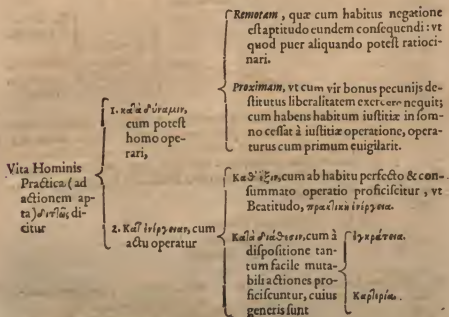 Vita Hominis
Practica (ad
actionem ap-
ta) διττῶς di-
citur
1. κατὰ δύναμιν,
cum potest
homo ope-
rari,
Remotam, quæ cum habitus negatione
est aptitudo eundem consequendi : vt
quod puer aliquando potest ratioci-
nari.
Proximam, vt cum vir bonus pecunijs de-
stitutus liberalitatem exercere nequit;
cum habens habitum iustitiæ in som-
no cessat à iustitiæ operatione, opera-
turus cum primum euigilarit.
2. Κατ' ἐνέργειαν, cum
actu operatur
Καθ' ἕξιν, cum ab habitu perfecto & con-
summato operatio proficiscitur , vt
Beatitudo, πρακτικὴ ἐνέργεια.
Κατὰ διάθεσιν, cum à
dispositione tan-
tum facile muta-
bili actiones pro-
ficiscuntur, cuius
generis sunt
ἐγκράτεια.
Καρτερία.